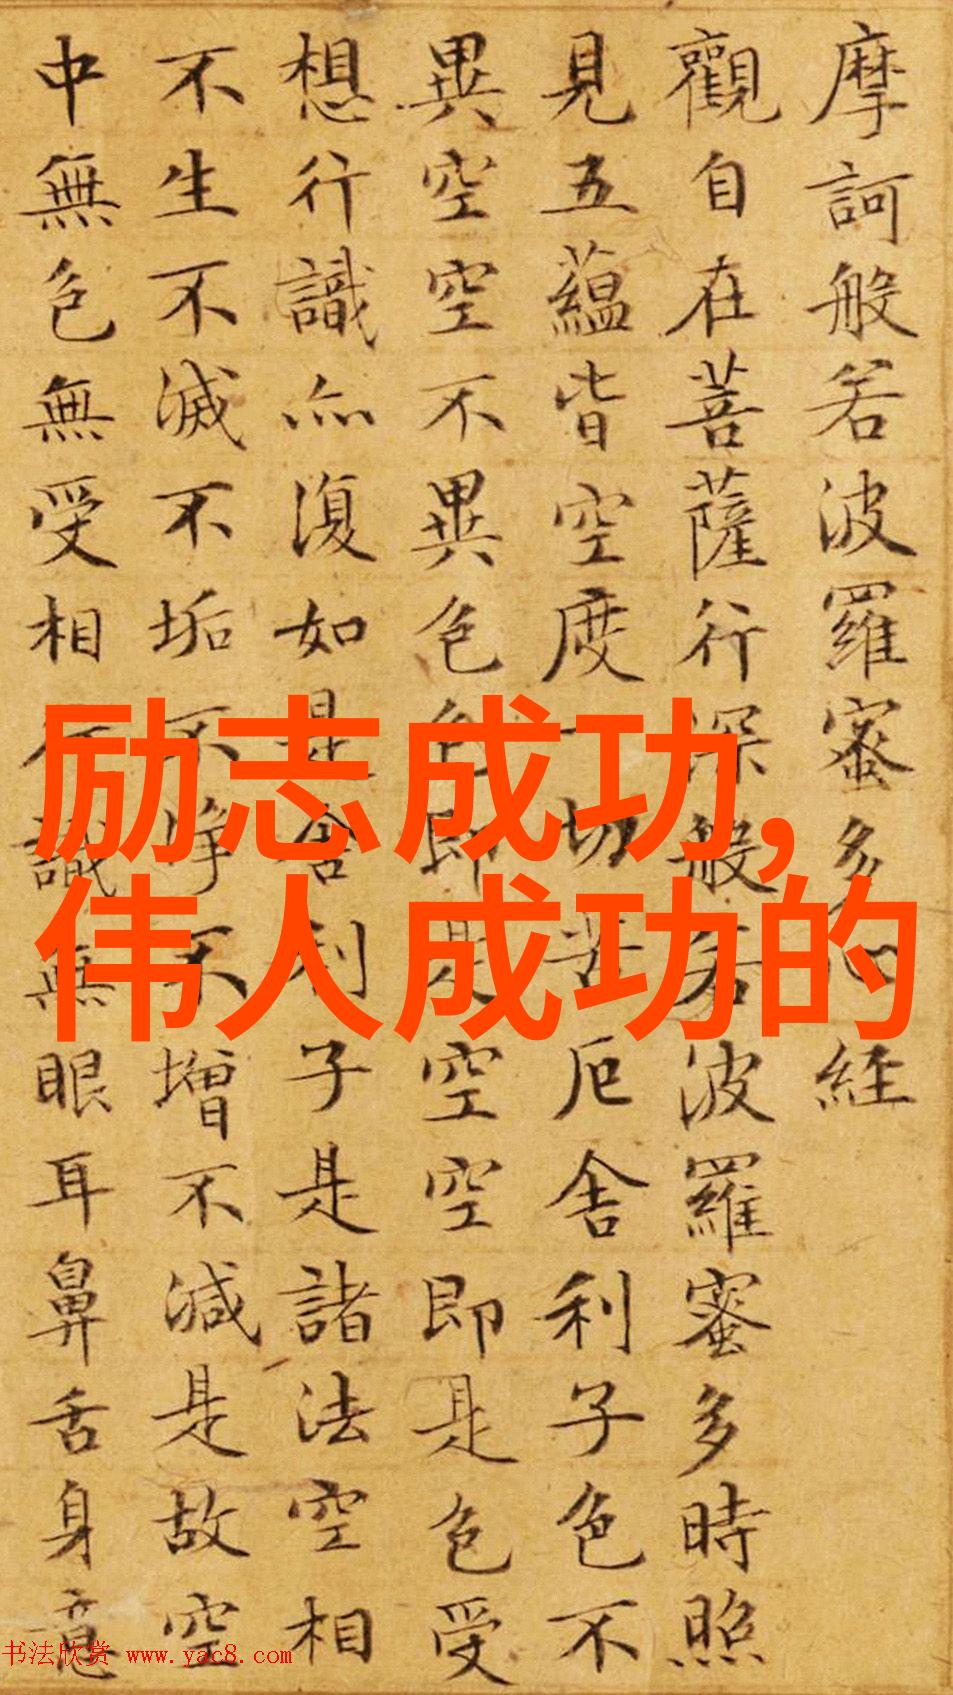 摩訶般若波羅蜜多心經
觀自在菩薩行深般若波羅蜜多時照
見五蘊皆空度一切苦厄舍利子色不
異空空不異色色即是空空即是色受
想行識亦復如是舍利子是諸法空相
不生不滅不垢不淨不增不減是故空
中無色無受相行識無眼耳鼻舌身意
励志成功,
伟人成功的
书法欣赏 www.yac8.com